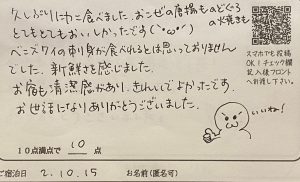 久しぶりにカニ食べました。おこぜの唐揚ものどぐろの火焼きも
とてもとてもおいしかったです(^ω^)
ベニズワイの刺身が食べれるとは思っておりません
でした。新鮮さを感じました。
お宿も清潔感があり、きれいでよかったです。
お世話になりありがとうございました。
いいね!
スマホでも投稿
OK!チェック欄
記入後フロント
へお渡し下さい。
10点満点で 10 点
ご宿泊日 2.10.15 お名前(匿名可)